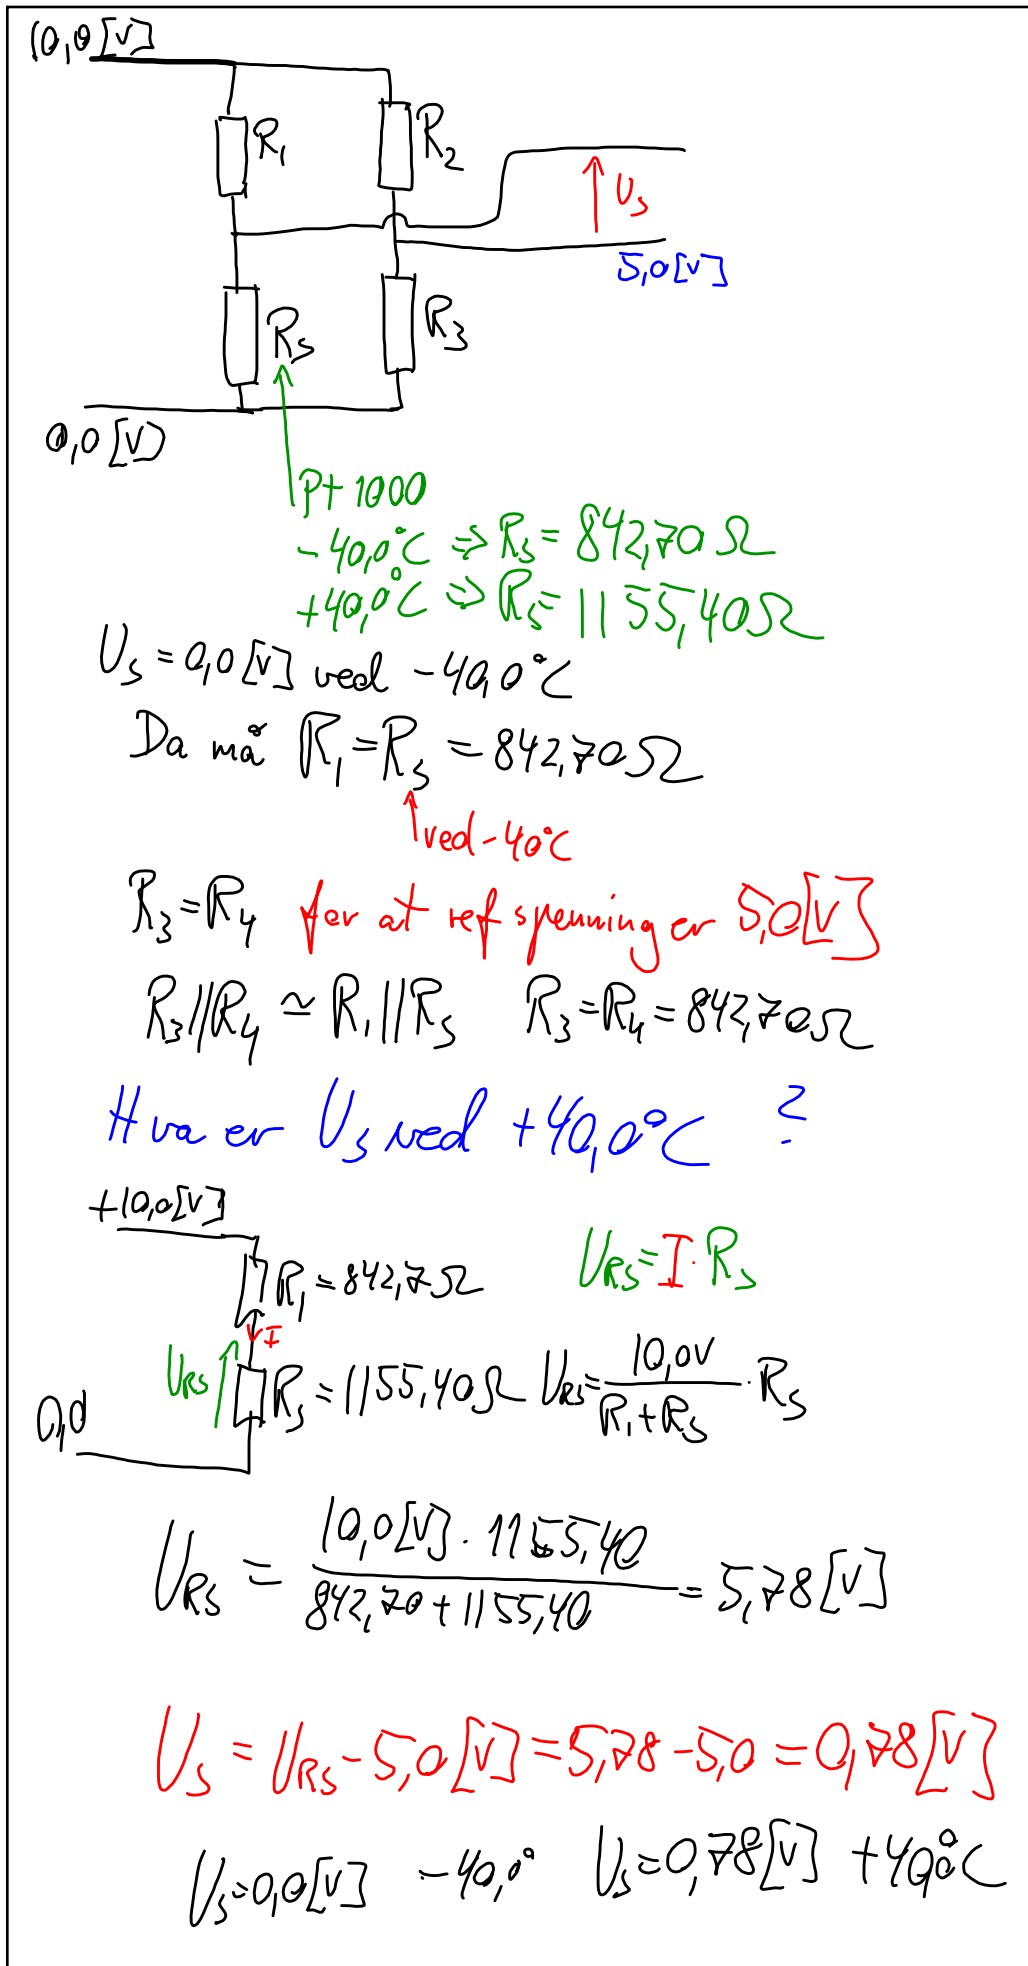 10,0[V]
R₁ R₂
U_s
5,0[V]
R_s R₃
0,0[V]
Pt 1000
-40,0°C ⇒ R_s = 842,70 Ω
+40,0°C ⇒ R_s = 1155,40 Ω
U_s = 0,0[V] ved -40,0°C
Da må R₁ = R_s = 842,70 Ω
ved -40°C
R₃ = R₄ for at ref spenning er 5,0[V]
R₃//R₄ ≃ R₁//R_s R₃ = R₄ = 842,70 Ω
Hva er U_s ved +40,0°C ?
+10,0[V]
U_RS = I · R_s
R₁ = 842,7 Ω
I
U_RS R_s = 1155,40 Ω U_RS = 10,0V / (R₁ + R_s) · R_s
0,0
U_RS = 10,0[V] · 1155,40 / (842,70 + 1155,40) = 5,78[V]
U_s = U_RS - 5,0[V] = 5,78 - 5,0 = 0,78[V]
U_s = 0,0[V] -40,0° U_s = 0,78[V] +40,0°C